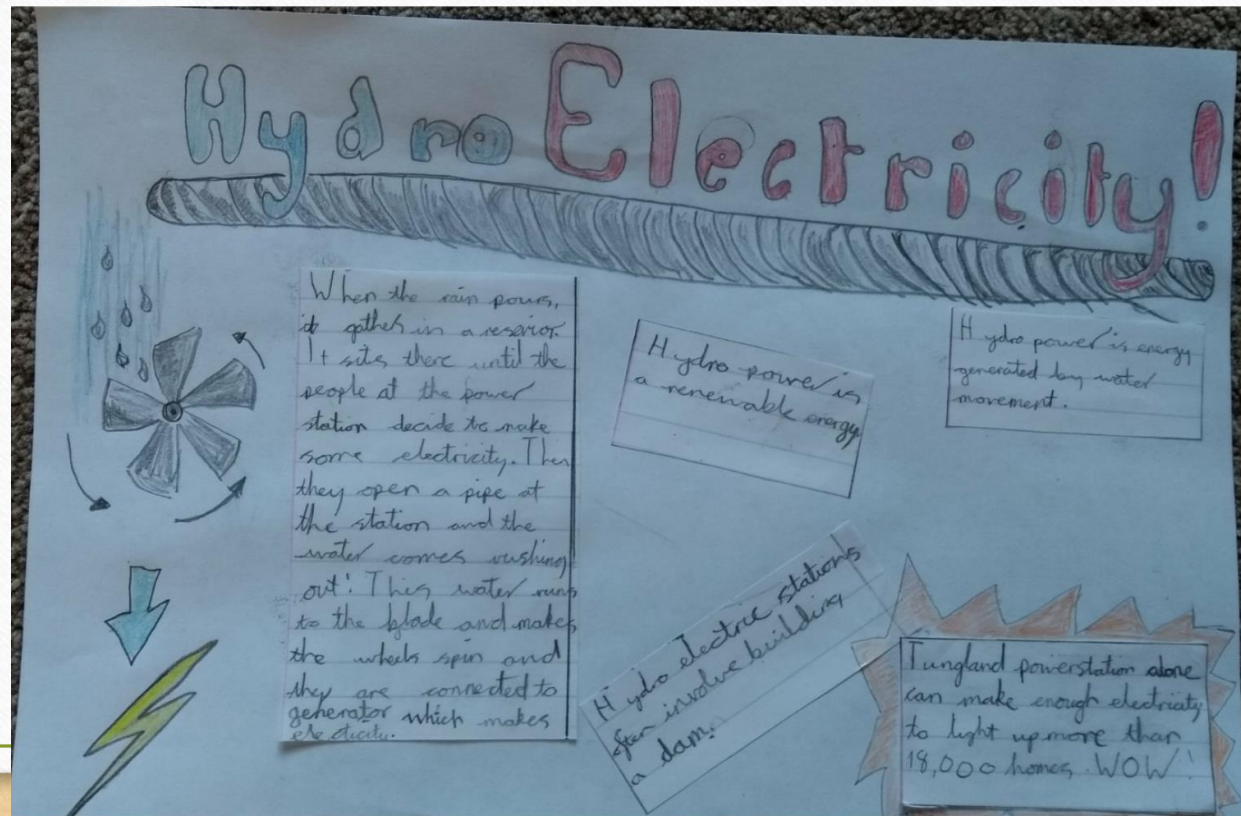 Hydro Electricity!
When the rain pours,
it gathes in a resevior.
It sits there until the
people at the power
station decide to make
some electricity. Then
they open a pipe at
the station and the
water comes rushing
out! This water runs
to the blade and makes
the wheels spin and
they are connected to
generator which makes
electicity.
Hydro power is
a renewable energy
Hydro power is energy
generated by water
movement.
Hydro electric stations
often involve building
a dam.
Tungland powerstation alone
can make enough electricity
to light up more than
18,000 homes WOW!